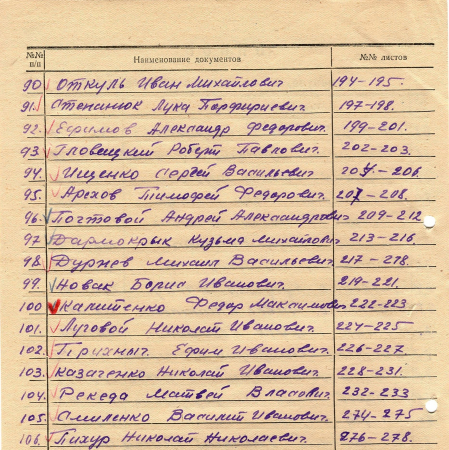 №№ п/п Наименование документов №№ листов
90. Откуль Иван Михайлович 194-195.
91. Степанюк Лука Порфириевич. 197-198.
92. Ефимов Александр Федорович. 199-201.
93. Гловецкий Роберт Павлович. 202-203.
94. Ищенко Сергей Васильевич 204-206.
95. Арехов Тимофей Федорович. 207-208.
96. Почтовой Андрей Александрович 209-212
97. Дармокрык Кузьма Михайлович 213-216
98. Дуржев Михаил Васильевич. 217-218.
99. Новак Борис Иванович. 219-221.
100 Капитенко Федор Максимович 222-223
101. Луговой Николай Иванович. 224-225
102. Ефим Иванович. 226-227
103. Казаченко Николай Иванович. 228-231.
104. Рекеда Матвей Власович. 232-233
105. Смиленко Василий Иванович. 274-275
106. Пихур Николай Николаевич. 276-278.